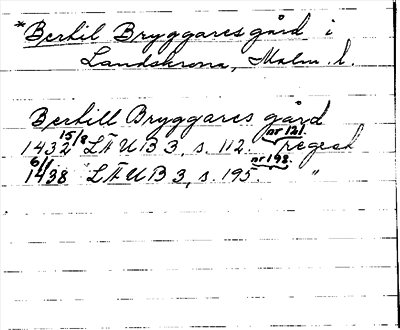 *Bertil Bryggares gård i
Landskrona, Malm. l.
Bertill Bryggares gård
1432 15/8 LÄUB 3, s. 112. nr 121. regest
1438 6/1 LÄUB 3, s. 195. nr 198. "